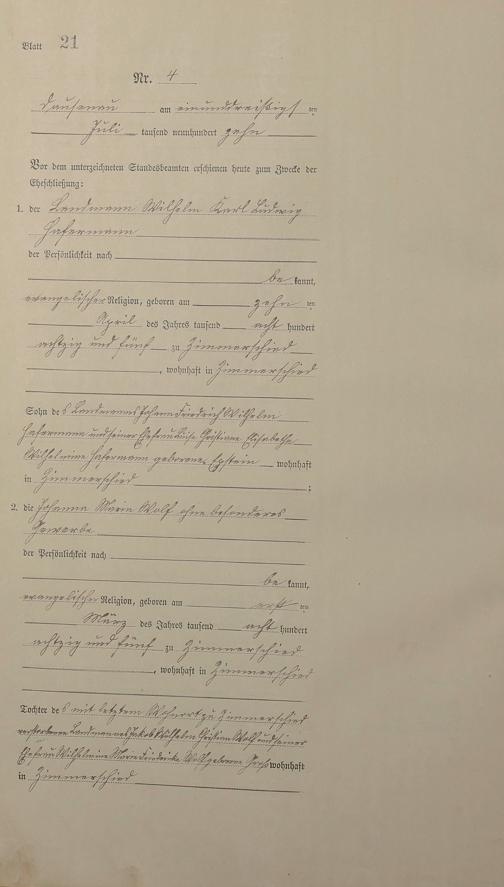 Blatt 21
Nr. 4
Dausenau am einunddreißigsten
Juli tausend neunhundert zehn
Vor dem unterzeichneten Standesbeamten erschienen heute zum Zwecke der
Eheschließung:
1. der Landmann Wilhelm Karl Ludwig
Hafermann
der Persönlichkeit nach
be kannt,
evangelischer Religion, geboren am zehn ten
April des Jahres tausend acht hundert
achtzig und fünf zu Zimmerschied
, wohnhaft in Zimmerschied
Sohn des Landmannes Johann Friedrich Wilhelm
Hafermann und seiner Ehefrau Luise Christiane Elisabethe
Wilhelmine Hafermann geborene Epstein wohnhaft
in Zimmerschied ;
2. die Johanna Maria Wolf ohne besonderes
Gewerbe
der Persönlichkeit nach
be kannt,
evangelischer Religion, geboren am ersten
März des Jahres tausend acht hundert
achtzig und fünf zu Zimmerschied
, wohnhaft in Zimmerschied
Tochter des mit letztem Wohnort zu Zimmerschied
verstorbenen Landmannes Jakob Wilhelm Christian Wolf und seiner
Ehefrau Wilhelmine Marie Friederike Wolf geborene wohnhaft
in Zimmerschied